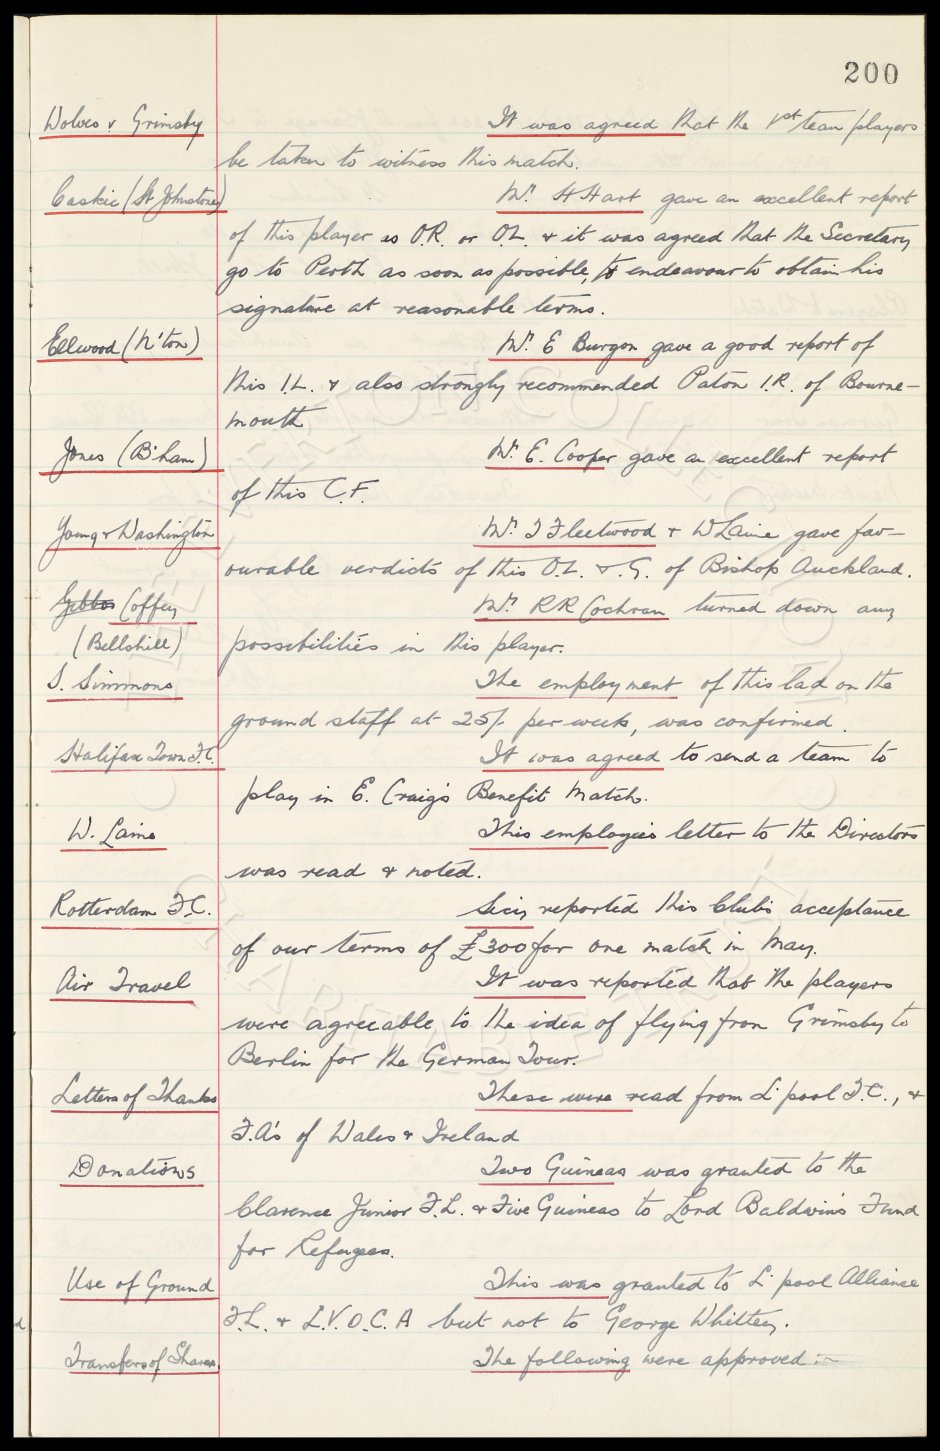 200
Wolves & Grimsby It was agreed that the 1st team players
be taken to witness this match.
Caskie (St Johnstone) Mr. H Hart gave an excellent report
of this player as O.R. or O.L. & it was agreed that the Secretary
go to Perth as soon as possible, to endeavour to obtain his
signature at reasonable terms.
Ellwood (N'ton) Mr. E Burgon gave a good report of
this I.L. & also strongly recommended Paton I.R. of Bourne-
mouth
Jones (B'ham) Mr. E. Cooper gave an excellent report
of this C.F.
Young & Washington Mr. J Fleetwood & W Laine gave fav-
ourable verdicts of this O.L. & G. of Bishop Auckland.
Gibbos Coffey Mr. R R Cochran turned down any
(Bellshill) possibilities in this player.
S. Simmons The employment of this lad on the
ground staff at 25/- per week, was confirmed.
Halifax Town F.C. It was agreed to send a team to
play in E. Craig's Benefit Match.
W. Laine This employee's letter to the Directors
was read & noted.
Rotterdam F.C. Secy reported this Club's acceptance
of our terms of £300 for one match in May.
Air Travel It was reported that the players
were agreeable to the idea of flying from Grimsby to
Berlin for the German Tour.
Letters of Thanks These were read from L'pool F.C., &
F.A's of Wales & Ireland
Donations Two Guineas was granted to the
Clarence Junior F.L. & Five Guineas to Lord Baldwin's Fund
for Refugees.
Use of Ground This was granted to L'pool Alliance
F.L. & L.V.O.C.A but not to George Whitten.
Transfers of Shares. The following were approved:-